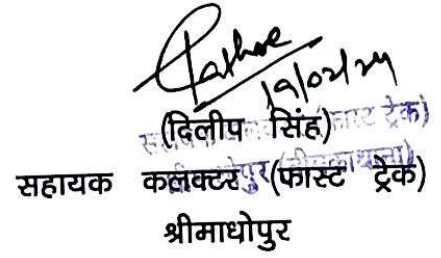 19/02/24
(दिलीप सिंह)
सहायक कलक्टर (फास्ट ट्रेक)
श्रीमाधोपुर